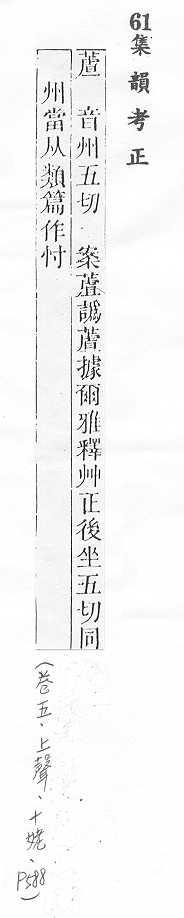 61集韻考正
蔖 音州五切 案蔖譌蘆據爾雅釋艸正後坐五切同
州當从類篇作忖
(卷五、上聲、十姥、P588)